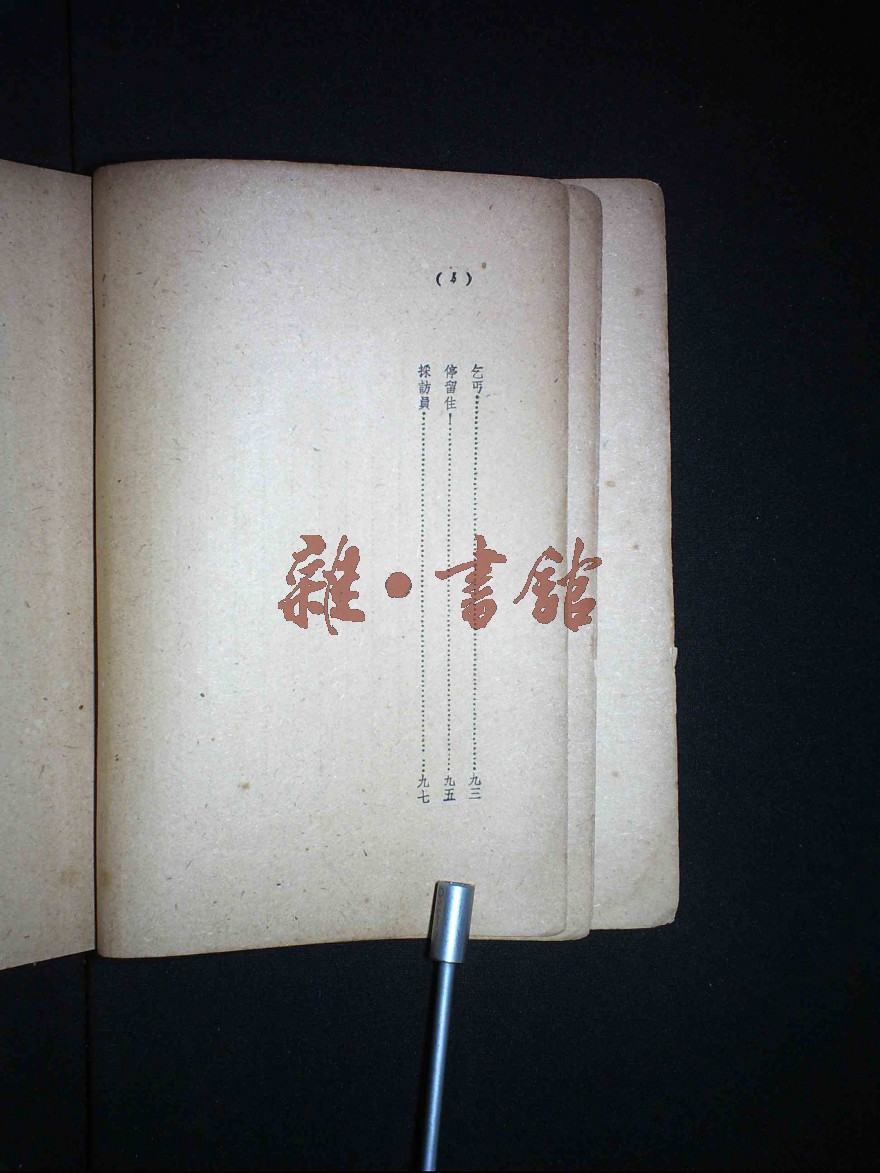 乞丐……九三
停留住！……九五
採訪員……九七
雜·書館